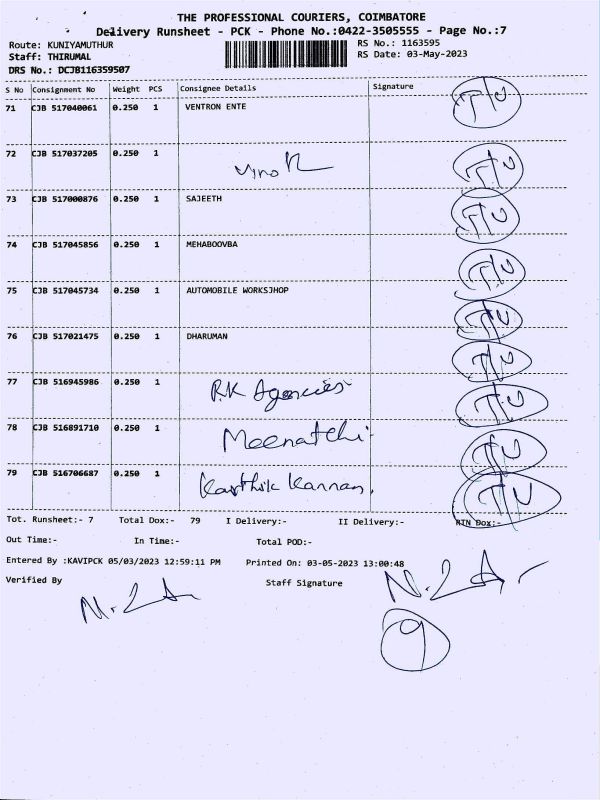 THE PROFESSIONAL COURIERS, COIMBATORE
Delivery Runsheet - PCK - Phone No.:0422-3505555 - Page No.:7
Route: KUNIYAMUTHUR
RS No.: 1163595
Staff: THIRUMAL
RS Date: 03-May-2023
DRS No.: DCJB116359507
S No Consignment No Weight PCS Consignee Details Signature
71 CJB 517040061 0.250 1 VENTRON ENTE T/U
72 CJB 517037205 0.250 1 T/U
73 CJB 517000876 0.250 1 SAJEETH T/U
74 CJB 517045856 0.250 1 MEHABOOVBA T/U
75 CJB 517045734 0.250 1 AUTOMOBILE WORKSJHOP T/U
76 CJB 517021475 0.250 1 DHARUMAN T/U
77 CJB 516945986 0.250 1 R.K Agencies T/U
78 CJB 516891710 0.250 1 Meenatchi T/U
79 CJB 516706687 0.250 1 Karthik Kannan, T/U
Tot. Runsheet:- 7 Total Dox:- 79 I Delivery:- II Delivery:- RTN Dox:-
Out Time:- In Time:- Total POD:-
Entered By :KAVIPCK 05/03/2023 12:59:11 PM Printed On: 03-05-2023 13:00:48
Verified By Staff Signature
9